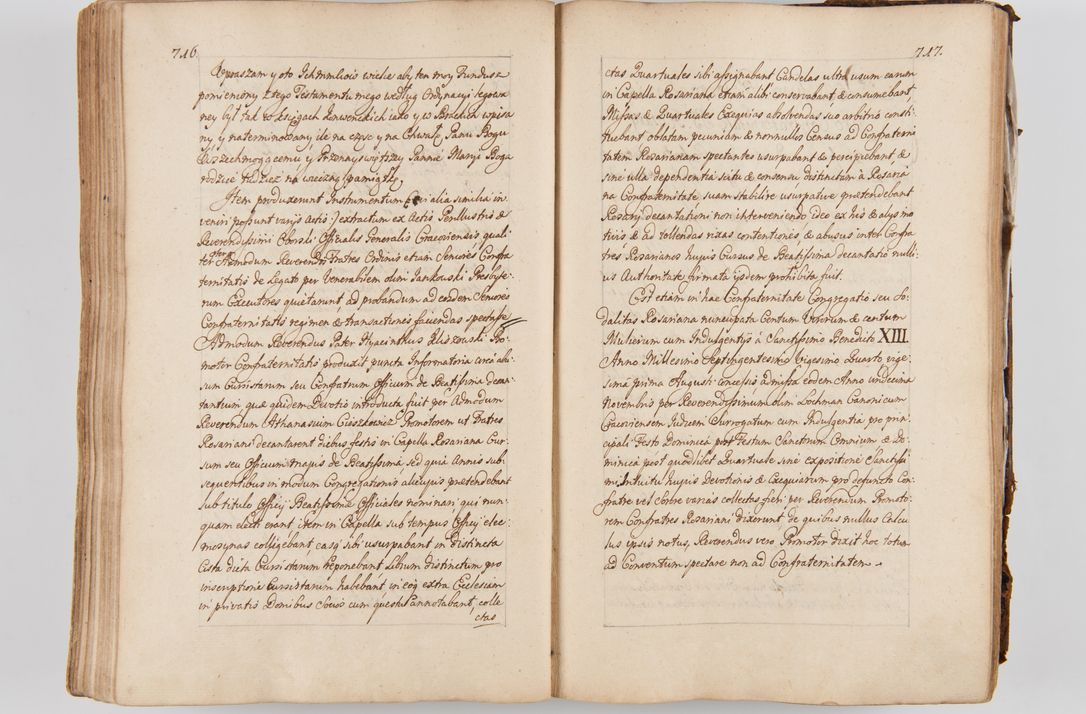 716.
Upraszam y oto Ichmmliois wielce aby ten moy Fundusz
pomieniony z tego Testamentu mego według Ordynacyi regowa
ney był tak w Xięgach Jenwenckich iako y w Brackich wpisa
ny, y naterminowany, ile na część y na Chwałę Panu Bogu
Wszechmogącemu y Przenayświętszey Pannie Maryi Boga
rodzicę tudziesz na wieczną pamiątkę
Item produxerunt Instrumentum alia similia in
veniri possunt varijs Actis extractum ex Actis Perillustris &
Reverendissimi Officialis Generalis Cracoviensis quali
ter Admodum Reverendi Fratres Ordinis etiam Seniores Confra
ternitatis de Legato per Venerabilem olim Jankowski Presbyte:
rum Executores quietarunt, ad probandum ad eosdem Seniores
Confraternitatis regimen & transactiones faciendas spectasse
Admodum Reverendus Pater Hyacinthus Pro:
motor Confraternitatis produxit puncta Informatoria circa abu:
sum Cursistarum seu Confratrum Officium de Beatissima decan:
tantium quæ quidem Devotio introducta fuit per Admodum
Reverendum Athanasium Cieszkowicz Promotorem ut Fratres
Rosariani decantarent diebus festis in Capella Rosariana Cur:
sum seu Officium majus de Beatissima sed quia Annis sub:
sequentibus in modum Congregationis alicujus prætendebant
sub titulo Officij Beatissimæ Officiales nominari qui nun:
quam electi erant, item in Capella sub tempus Officij elee:
mosynas colligebant easq sibi usurpabant in distincta
Cista dicta Cursistarum reponebant Librum distinctum pro
inscriptione Cursistarum habebant in eoq extra Ecclesiam
in privatis Domibus Socios cum quæstu annotabant, colle
ctas

717.
ctas Quartuales sibi assignabant, Candelas ultra usum earum
in Capella Rosariana etiam alibi conservabant, & consumebant,
Missas & Quartuales Exequias absolvendas suo arbitrio consti:
tuebant oblatam pecuniam & nonnullos Census ad Confraterni
tatem Rosarianam spectantes usurpabant & percipiebant, &
sine ulla dependentia scitu & consensu distinctam à Rosaria
na Confraternitate suam stabilire usurpative prætendebant
Rosarij decantationi non interveniendo ideo ex his & alijs mo
tivis & ad tollendas rixas contentiones, & abusus inter Confra
tres Rosarianos hujus Cursus de Beatissima decantatio nulli:
us Authoritate firmata ijsdem prohibita fuit.
Est etiam in hac Confraternitate Congregatio seu So:
dalitas Rosariana nuncupata Centum Virorum & centum
Mulierum cum Indulgentijs à Sanctissimo Benedicto XIII.
Anno Millesimo Septingentesimo Vigesimo Quarto vige:
sima prima Augusti concessis admissa eodem Anno undecima
Novembris per Reverendissimum olim Lochman Canonicum
Cracoviensem Judicem Surrogatum cum Indulgentia pro prin:
cipali Festo Dominica post Festum Sanctorum Omnium & Do:
minica post quodlibet Quartuale sine expositione Sanctissi
mi. Intuitu hujus Devotionis & Exequiarum pro defuncto Con:
fratre vel Sorore varias collectas fieri per Reverendum Promoto:
rem Confratres Rosariani dixerunt, de quibus nullus Calcu
lus ipsis notus, Reverendus vero Promotor dixit hoc totum
ad Conventum spectare non ad Confraternitatem.